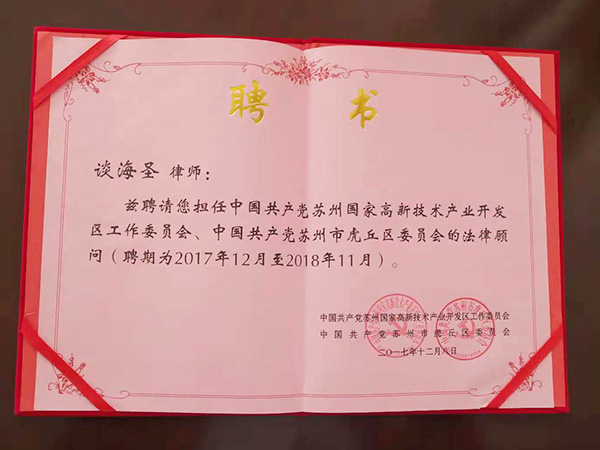 聘 书
谈海圣 律师：
兹聘请您担任中国共产党苏州国家高新技术产业开发
区工作委员会、中国共产党苏州市虎丘区委员会的法律顾
问（聘期为2017年12月至2018年11月）。
中国共产党苏州国家高新技术产业开发区工作委员会
中国共产党苏州市虎丘区委员会
二〇一七年十二月八日